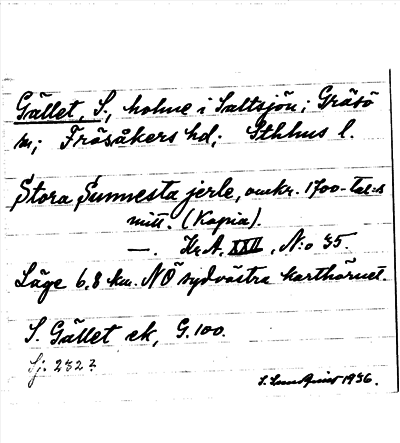 Gället, S., holme i Saltsjön; Gräsö
sn; Frösåkers hd; Sthlms l.
Stora Sunnesta jerle, omkr. 1700-tal:s
mitt. (Kopia).
—. Kr.A. XXII, N:o 35.
Läge 6,8 km. NÖ sydvästra karthörnet.
S. Gället ek, G.100.
Sj. 232 2
1936.